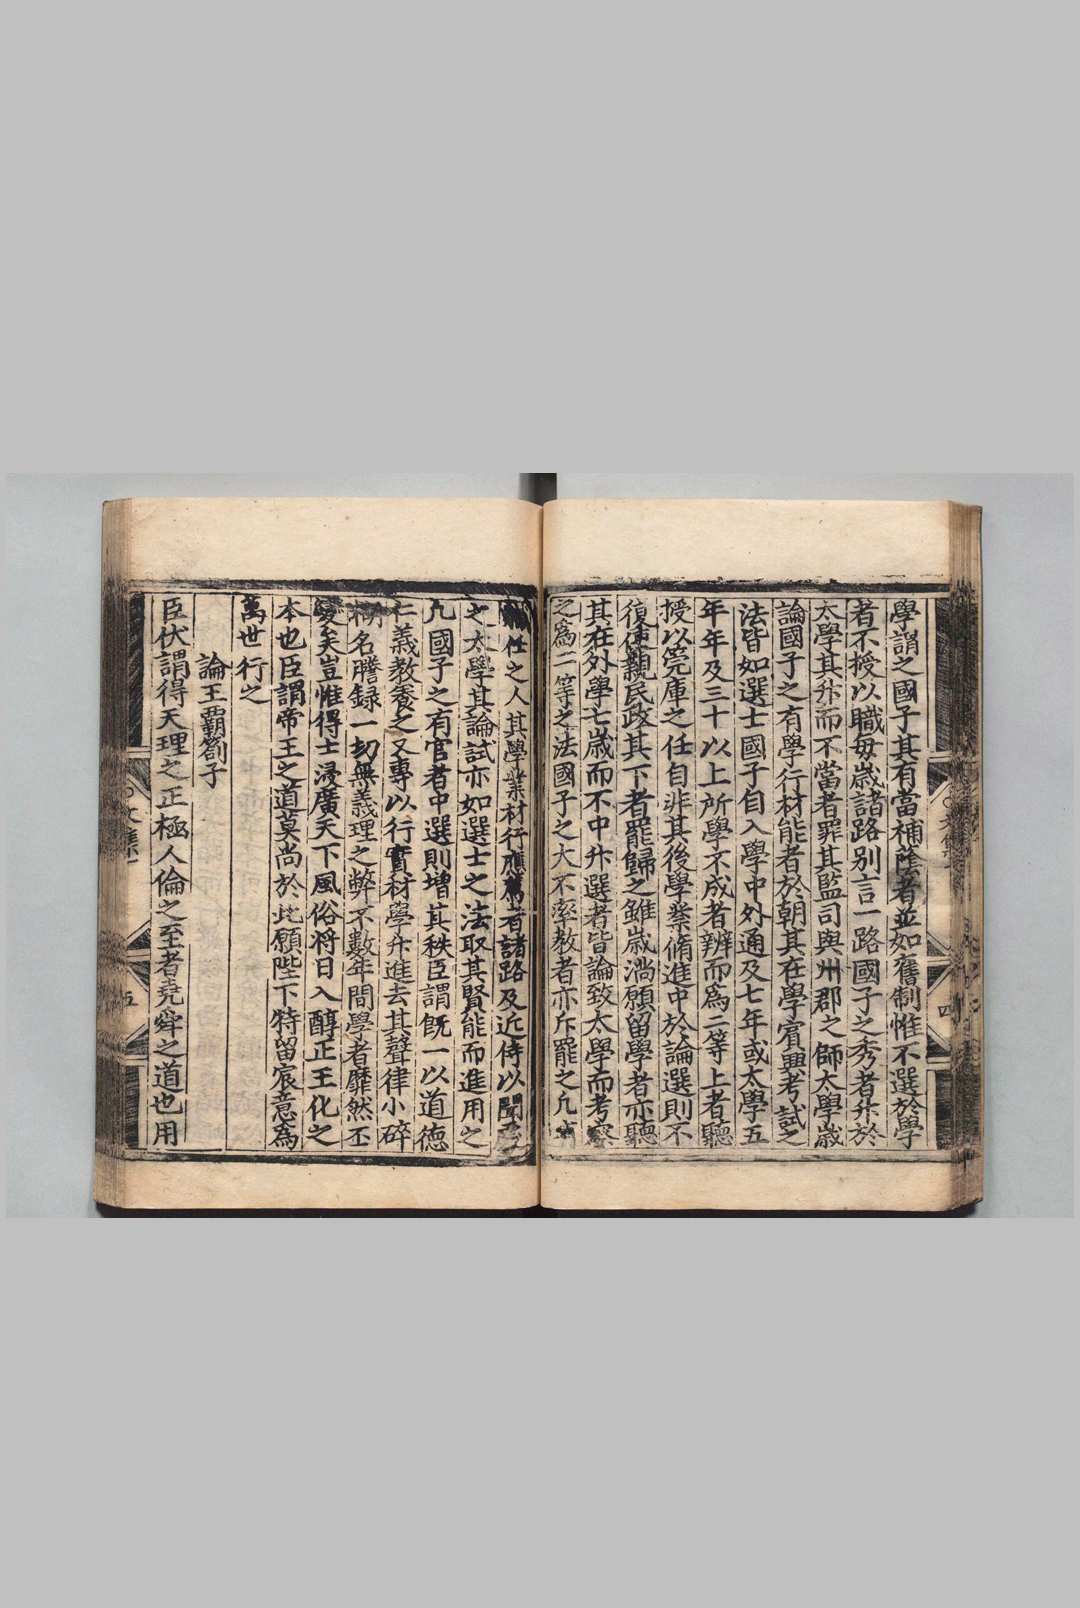 學謂之國子其有當補蔭者並如舊制惟不選於學
者不授以職每歲諸路別言一路國子之秀者升於
太學其升而不當者罪其監司與州郡之師太學歲
論國子之有學行材能者於朝其在學賓興考試之
法皆如選士國子自入學中外通及七年或太學五
年年及三十以上所學不成者辨而爲二等上者聽
授以筦庫之任自非其後學業脩進中於論選則不
復使親民政其下者罷歸之雖歲滿願留學者亦聽
其在外學七歲而不中升選者皆論致太學而考察
之爲二等之法國子之大不率教者亦斥罷之凡
任之人其學業材行應薦者諸路及近侍以聞
之太學其論試亦如選士之法取其賢能而進用之
凡國子之有官者中選則增其秩臣謂旣一以道德
仁義教養之又專以行實材學升進去其聲律小碎
糊名謄録一切無義理之弊不數年間學者靡然丕
變矣豈惟得士浸廣天下風俗将日入醇正王化之
本也臣謂帝王之道莫尚於此願陛下特留宸意爲
萬世行之
論王霸劄子
臣伏謂得天理之正極人倫之至者堯舜之道也用
文集一
四
五